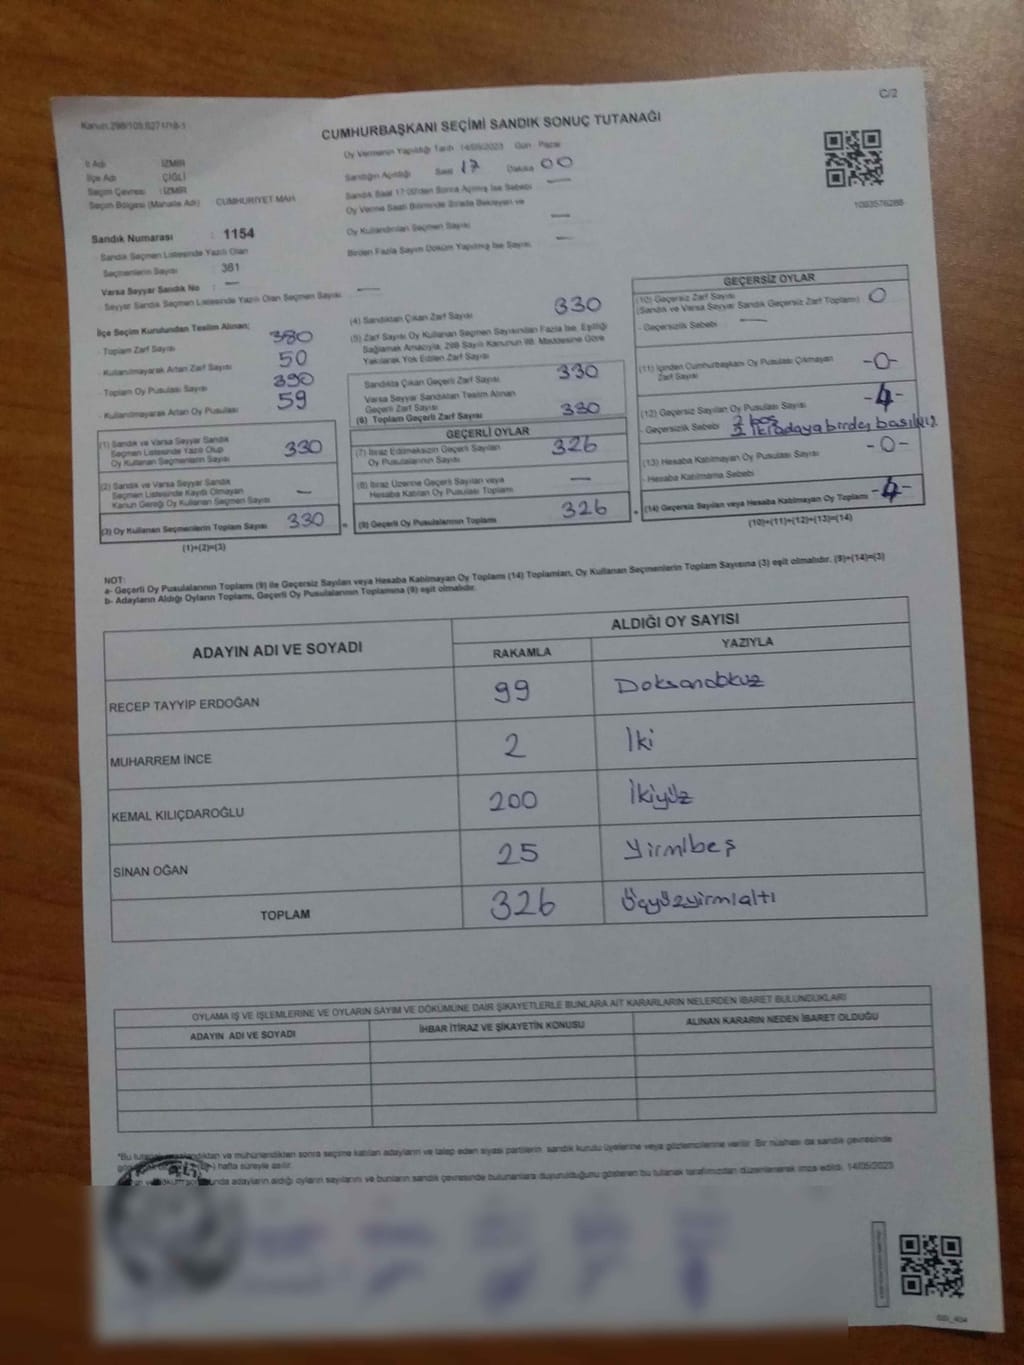 C/2
Kanun:298/105,6271/18-1
CUMHURBAŞKANI SEÇİMİ SANDIK SONUÇ TUTANAĞI
İl Adı : İZMİR
İlçe Adı : ÇİĞLİ
Seçim Çevresi : İZMİR
Seçim Bölgesi (Mahalle Adı) CUMHURİYET MAH
Sandık Numarası : 1154
- Sandık Seçmen Listesinde Yazılı Olan
Seçmenlerin Sayısı : 361
Varsa Seyyar Sandık No : —
- Seyyar Sandık Seçmen Listesinde Yazılı Olan Seçmen Sayısı —
Oy Vermenin Yapıldığı Tarih 14/05/2023 Gün Pazar
Sandığın Açıldığı Saat 17 Dakika 00
Sandık Saat 17:00'den Sonra Açılmış İse Sebebi —
Oy Verme Saati Bitiminde Sırada Bekleyen ve
Oy Kullandırılan Seçmen Sayısı —
Birden Fazla Sayım Döküm Yapılmış İse Sayısı —
1093576288
İlçe Seçim Kurulundan Teslim Alınan;
- Toplam Zarf Sayısı 380
- Kullanılmayarak Artan Zarf Sayısı 50
- Toplam Oy Pusulası Sayısı 390
- Kullanılmayarak Artan Oy Pusulası 59
(1) Sandık ve Varsa Seyyar Sandık
Seçmen Listesinde Yazılı Olup
Oy Kullanan Seçmenlerin Sayısı 330
(2) Sandık ve Varsa Seyyar Sandık
Seçmen Listesinde Kayıtlı Olmayan
Kanun Gereği Oy Kullanan Seçmen Sayısı —
(3) Oy Kullanan Seçmenlerin Toplam Sayısı 330 =
(1)+(2)=(3)
(4) Sandıktan Çıkan Zarf Sayısı 330
(5) Zarf Sayısı Oy Kullanan Seçmen Sayısından Fazla İse, Eşitliği
Sağlamak Amacıyla, 298 Sayılı Kanunun 98. Maddesine Göre
Yakılarak Yok Edilen Zarf Sayısı
Sandıkta Çıkan Geçerli Zarf Sayısı 330
Varsa Seyyar Sandıktan Teslim Alınan
Geçerli Zarf Sayısı
(6) Toplam Geçerli Zarf Sayısı 330
GEÇERLİ OYLAR
(7) İtiraz Edilmeksizin Geçerli Sayılan
Oy Pusulalarının Sayısı 326
(8) İtiraz Üzerine Geçerli Sayılan veya
Hesaba Katılan Oy Pusulası Toplamı —
(9) Geçerli Oy Pusulalarının Toplamı 326 +
GEÇERSİZ OYLAR
(10) Geçersiz Zarf Sayısı
(Sandık ve Varsa Seyyar Sandık Geçersiz Zarf Toplamı) 0
- Geçersizlik Sebebi —
(11) İçinden Cumhurbaşkanı Oy Pusulası Çıkmayan
Zarf Sayısı -0-
(12) Geçersiz Sayılan Oy Pusulası Sayısı -4-
- Geçersizlik Sebebi 2 boş
2 iki adaya birden basılmış
(13) Hesaba Katılmayan Oy Pusulası Sayısı -0-
- Hesaba Katılmama Sebebi
(14) Geçersiz Sayılan veya Hesaba Katılmayan Oy Toplamı -4-
(10)+(11)+(12)+(13)=(14)
NOT:
a- Geçerli Oy Pusulalarının Toplamı (9) ile Geçersiz Sayılan veya Hesaba Katılmayan Oy Toplamı (14) Toplamları, Oy Kullanan Seçmenlerin Toplam Sayısına (3) eşit olmalıdır. (9)+(14)=(3)
b- Adayların Aldığı Oyların Toplamı, Geçerli Oy Pusulalarının Toplamına (9) eşit olmalıdır.
ADAYIN ADI VE SOYADI
ALDIĞI OY SAYISI
RAKAMLA YAZIYLA
RECEP TAYYİP ERDOĞAN 99 Doksandokuz
MUHARREM İNCE 2 İki
KEMAL KILIÇDAROĞLU 200 İkiyüz
SİNAN OĞAN 25 Yirmibeş
TOPLAM 326 Üçyüzyirmialtı
OYLAMA İŞ VE İŞLEMLERİNE VE OYLARIN SAYIM VE DÖKÜMÜNE DAİR ŞİKAYETLERLE BUNLARA AİT KARARLARIN NELERDEN İBARET BULUNDUKLARI
ADAYIN ADI VE SOYADI İHBAR İTİRAZ VE ŞİKAYETİN KONUSU ALINAN KARARIN NEDEN İBARET OLDUĞU
*Bu ve mühürlendikten sonra seçime katılan adayların ve talep eden siyasi partilerin sandık kurulu üyelerine veya gözlemcilerine verilir. Bir nüshası da sandık çevresinde
hafta süreyle asılır.
adayların aldığı oyların sayılarını ve bunların sandık çevresinde bulunanlara duyurulduğunu gösteren bu tutanak tarafımızdan düzenlenerek imza edildi. 14/05/2023